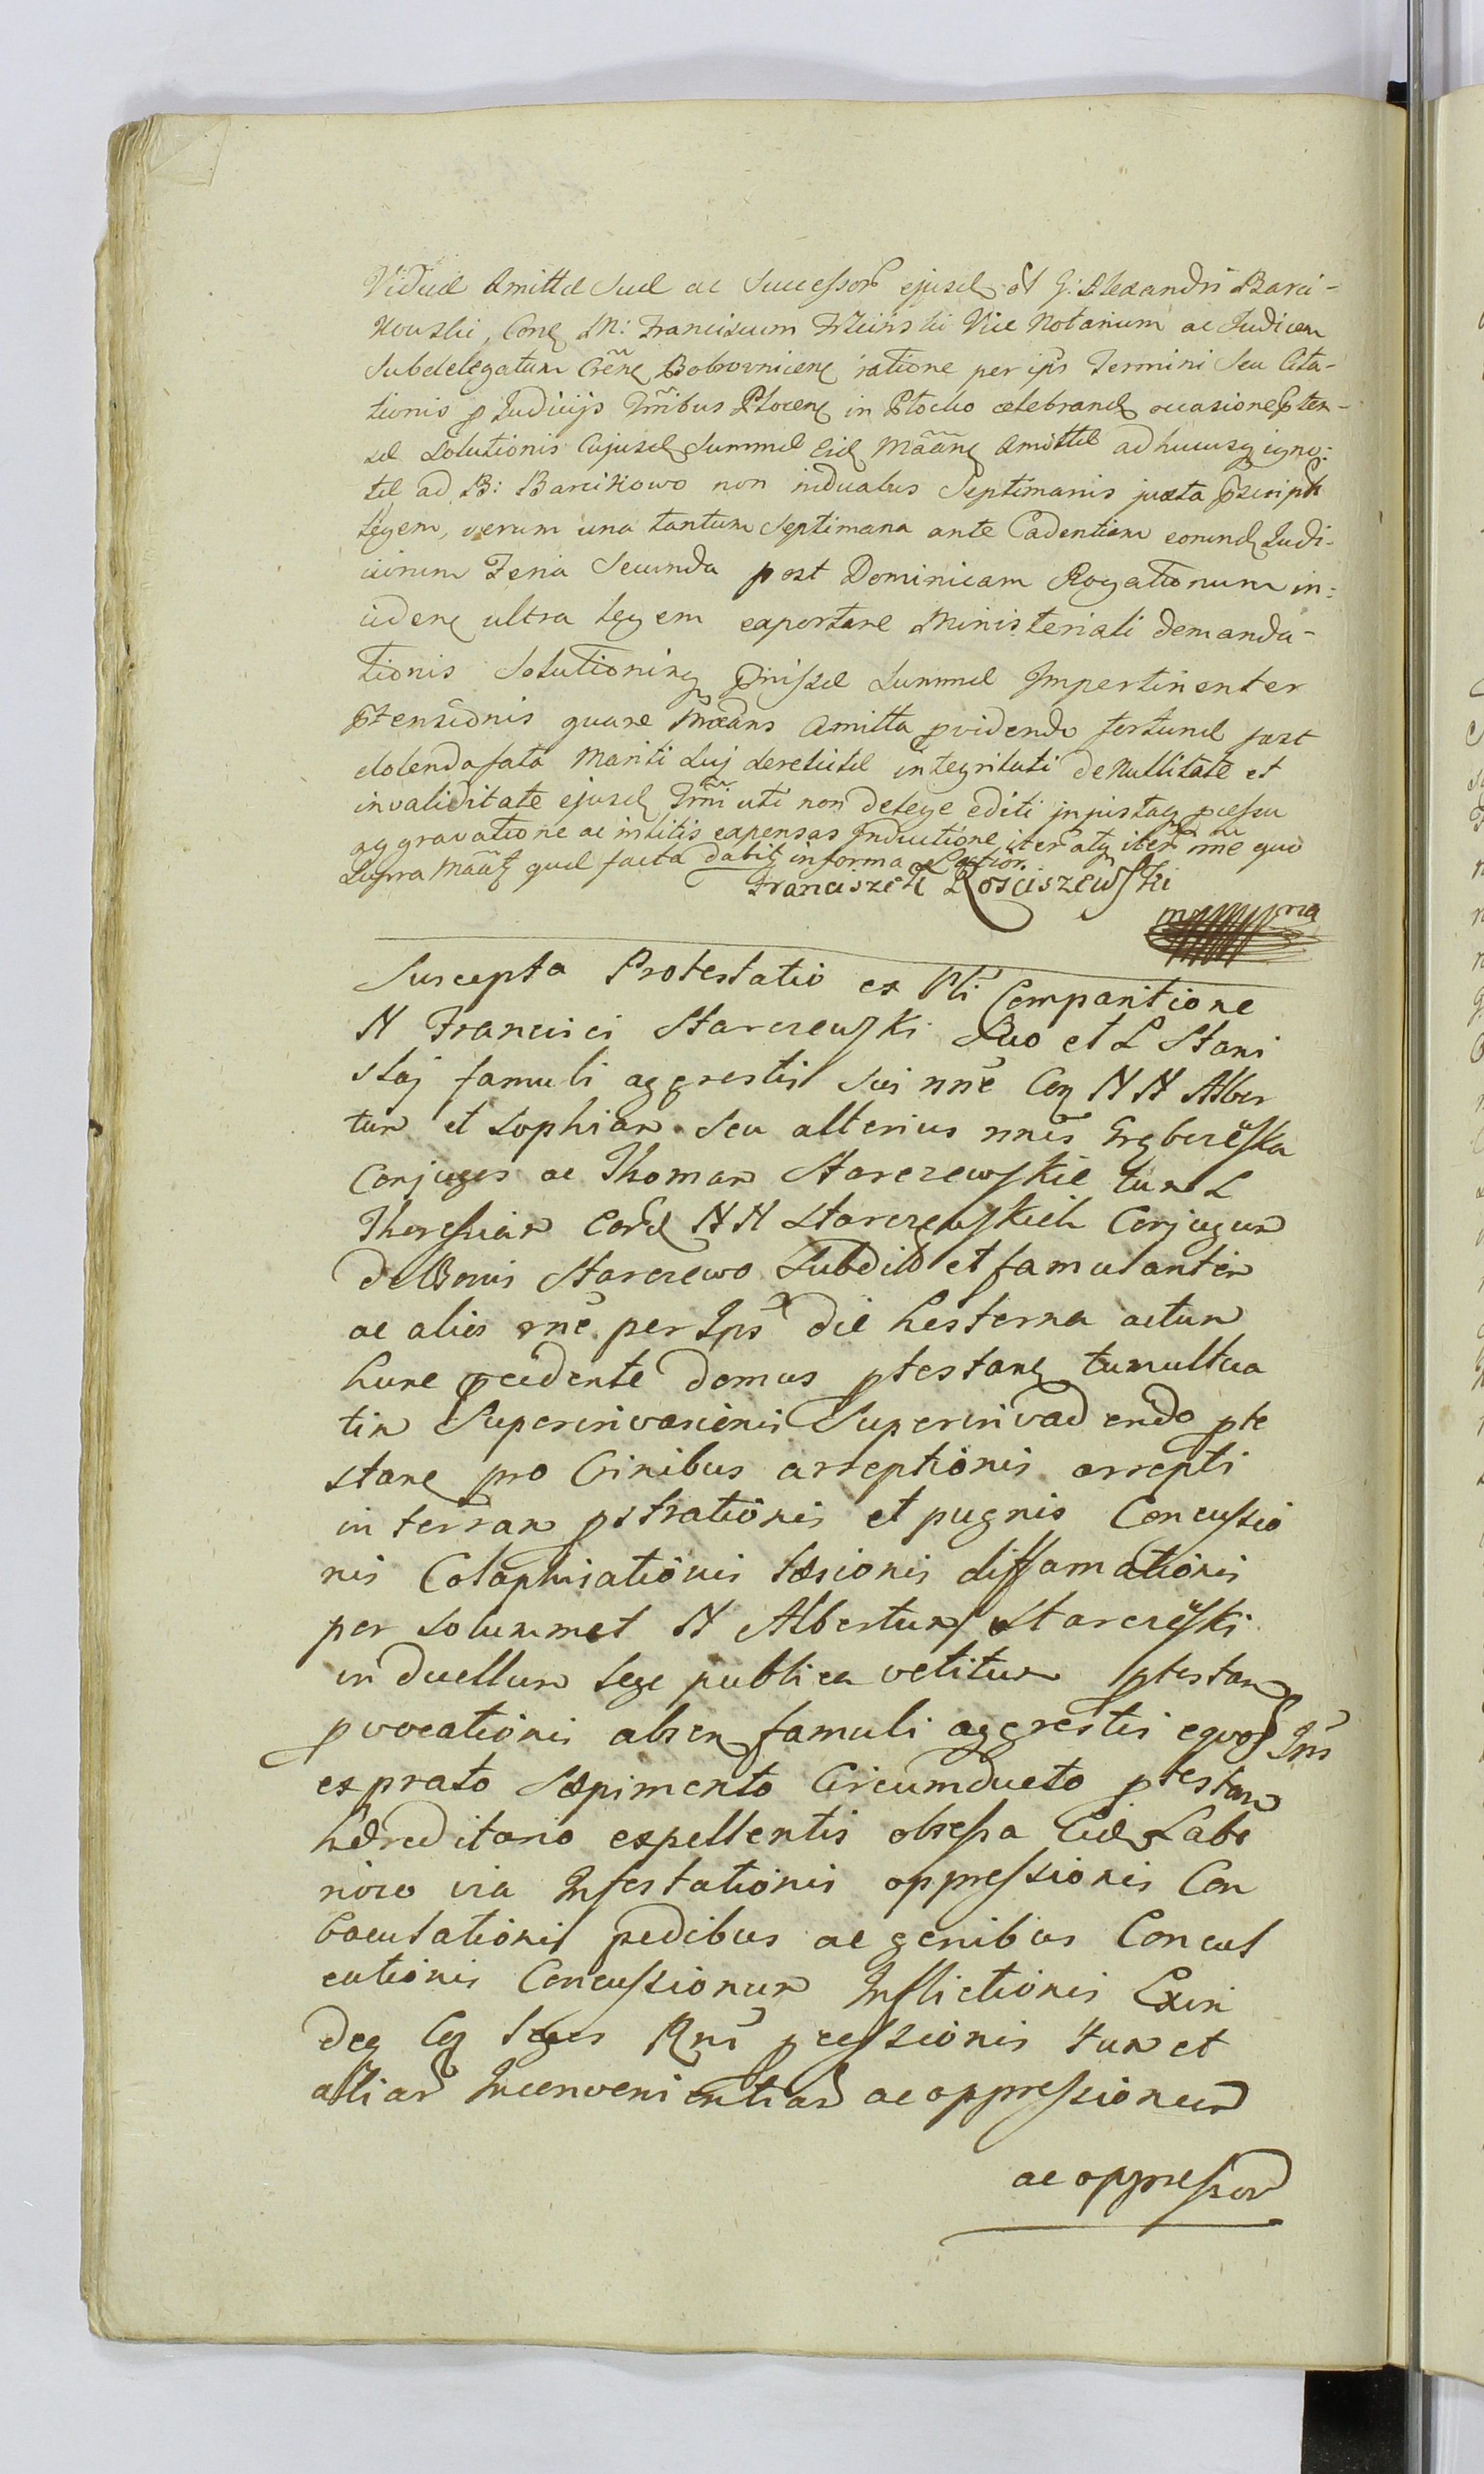 Viduæ Amittæ Suæ ac Successor ejusd et G: Alexandri Barci-
kowski, Con M: Franciscum Trzcinski Vice Notarium ac Judicem
Subdelegatum Bobrovnicen ratione per ips Termini Seu Cita-
tionis p Judicijs Trribus Plocen in Plocko celebrand occasione pten-
sæ Solutionis Cujusd Summæ Amittæ ad hucusq igno:
tæ ad B: Barcikowo non induabus Septimanis juxta pscript
Legem, verum una tantum Septimana ante Cadentiam eorund Judi-
ciorum Feria Secunda post Dominicam Rogationum in:
ciden ultra legem exportare Ministeriali demanda-
tionis Solutionisq pmissæ Summæ Impertinenter
ptensionis quare Amitta pvidendo fortunæ post
dolenda fata Mariti Suj derelictæ integritati de Nullitate et
invaliditate ejusd Trmi uti non delege editi injustaq pcessu
aggravatione ac in litis expensas Inductione iter atq iter me quo
Supra quæ facta dabit informa Lation.
Franciszek Rosciszewski
mpria
Suscepta Protestatio ex Pli Comparitione
N Francisci Starczewski Suo et L Stani
slaj famuli aggrestis sui nne Con N N Alber
tum et Sophiam Seu alterius nnis
Conjuges ac Thomam Starczewskie tum L
Theressiam Cord N N Starczewskich Conjugum
de Bonis Starczewo Subdit et famulantem
ac alios rne per Ips die hesterna actum
hunc pcedente domus ptestan tumultua
tim Superinvasionis Superinvadendo pte
stane pro Crinibus arreptionis arrepti
in terram pstrationis et pugnis Concussio
nis Colaphisationis læsionis diffamationis
per solummet N Albertum Starczewski
in duellum lege publica vetitum ptestan
pvocationis absen famuli aggrestis equos Ips
ex prato Sæpimento Circumducto ptestan
hæreditario expellentis obsessa Labo
rioso via Infestationis oppressionis Con
baculationis pedibus ac genibus Concul
cationis Concussionum Inflictionis Exin
deq Cq leges Rni pcessionis tum et
aliar Inconvenientiar ac oppressionum
ac oppression